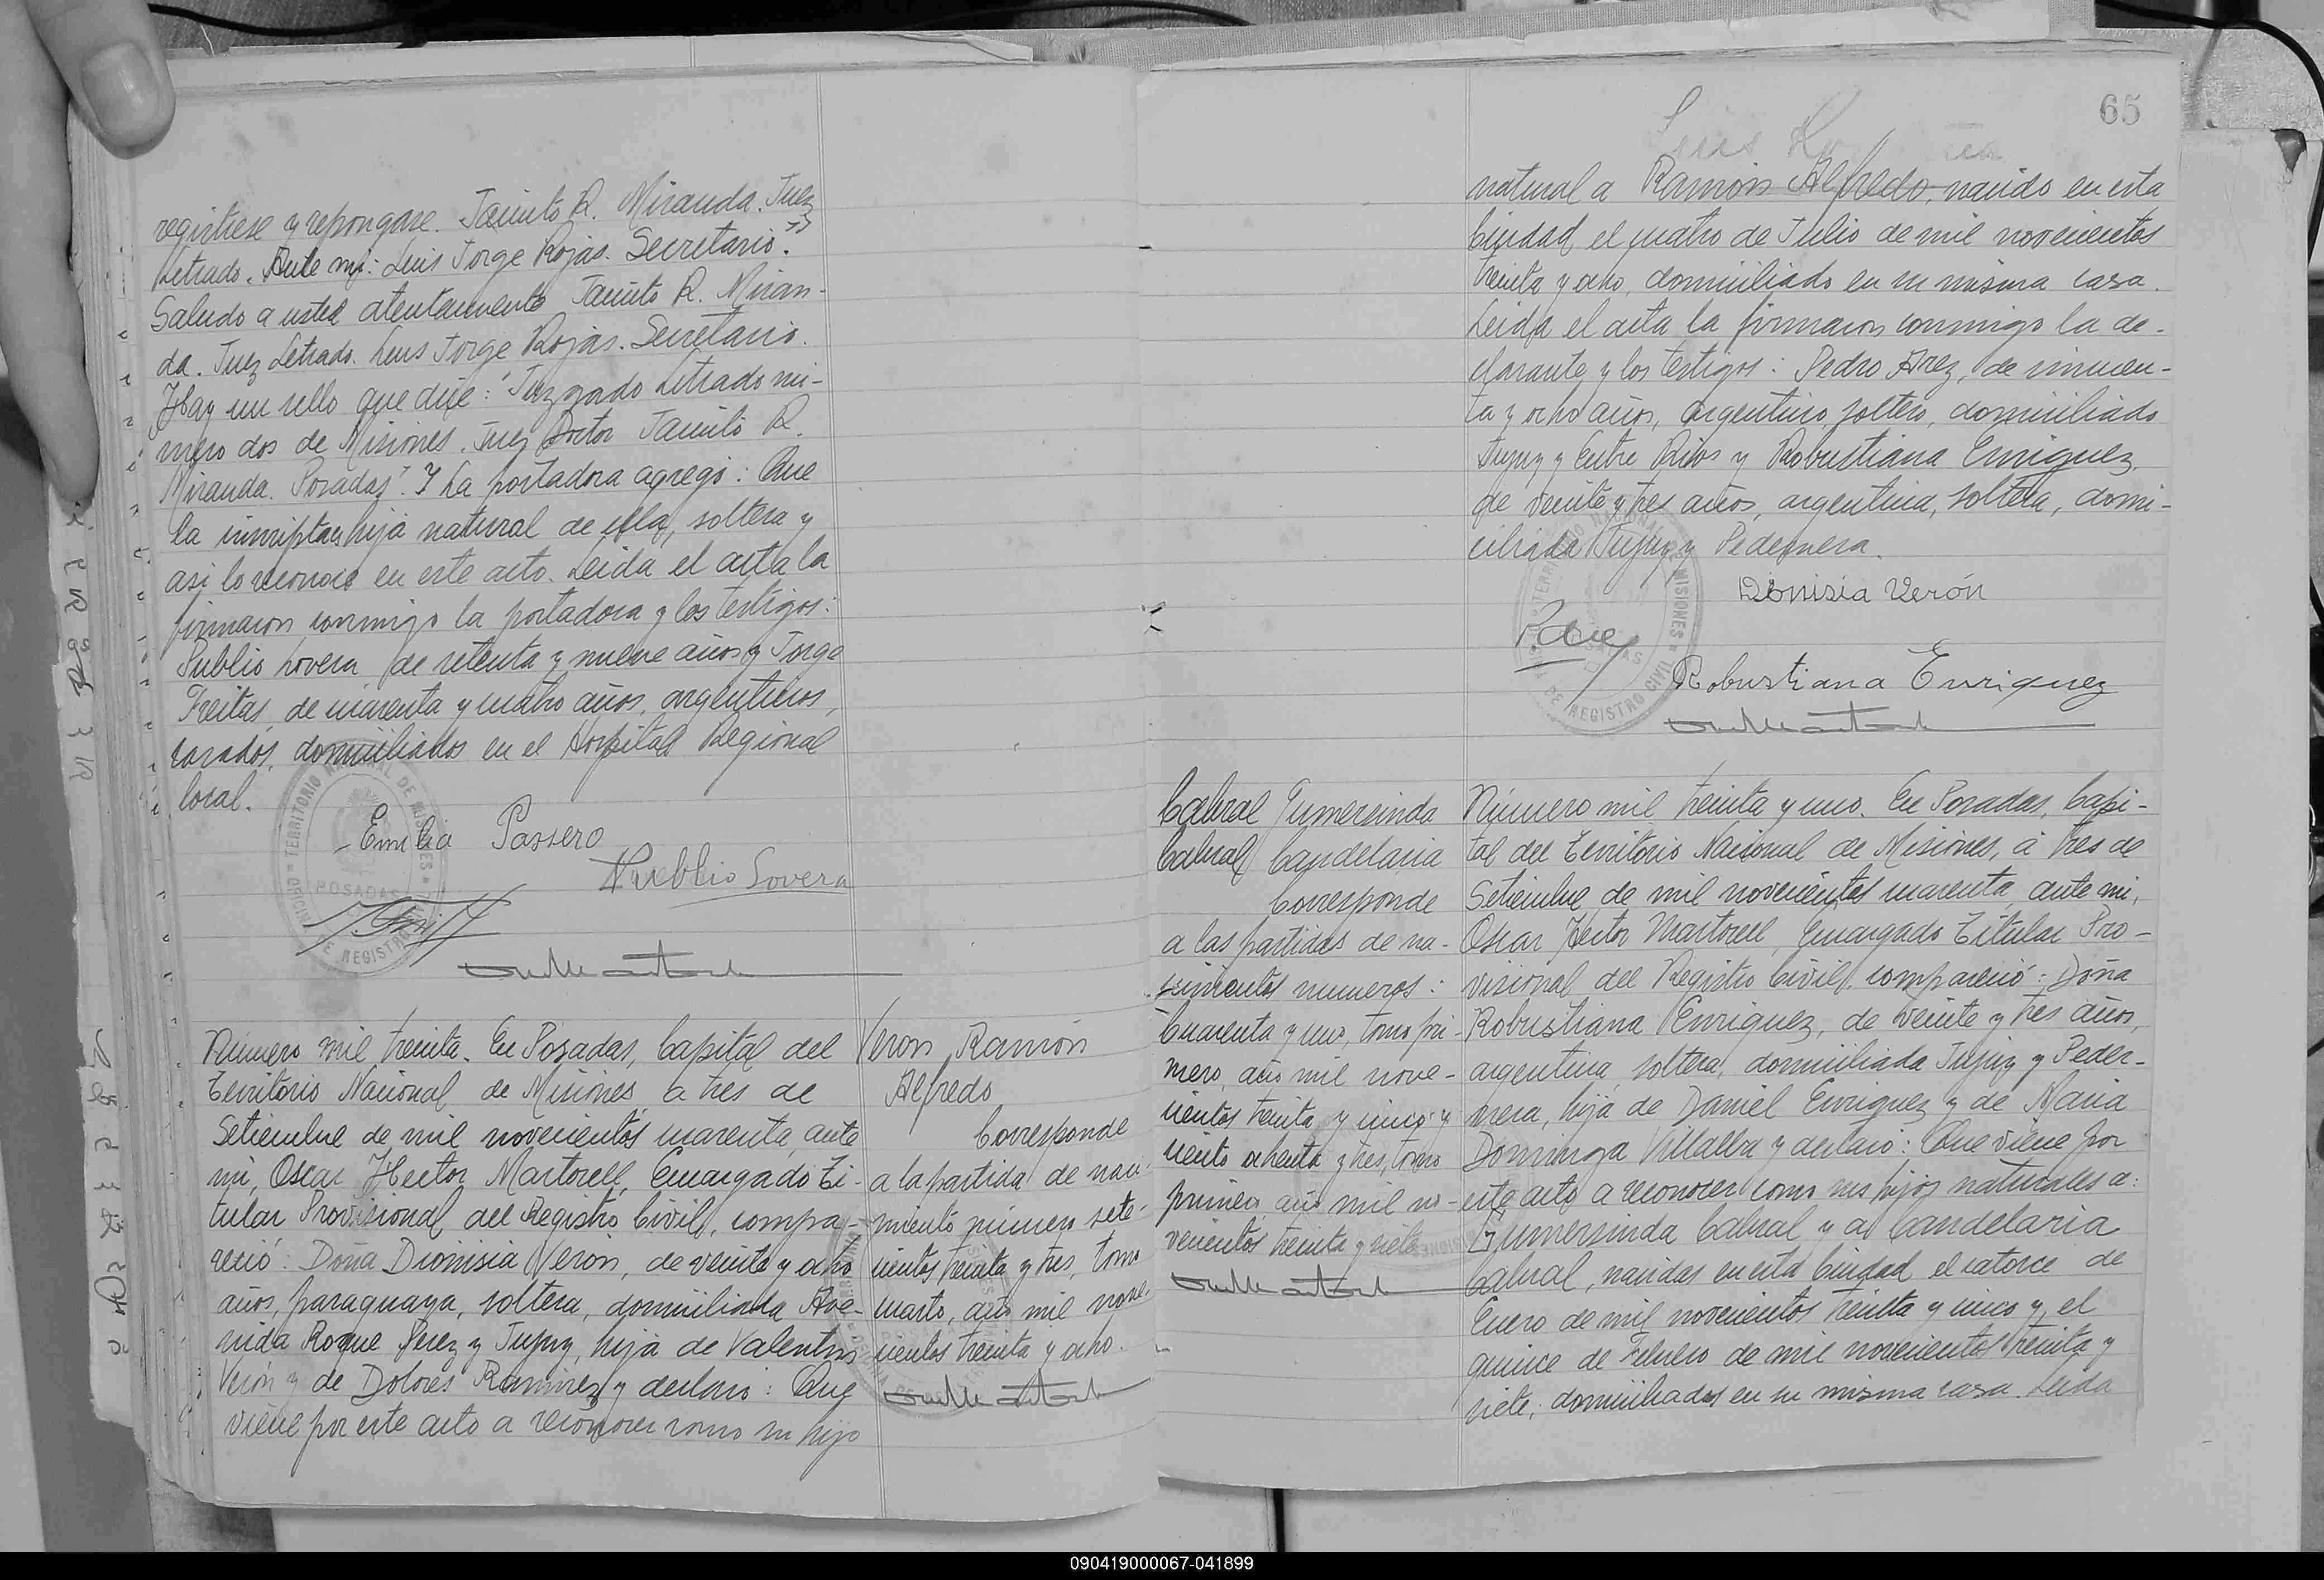 registrese y repongase. Jacinto R. Miranda. Juez
Letrado. Ante mi: Luis Jorge Rojas. Secretario."
Saludo a usted atentamente Jacinto R. Miran-
da. Juez Letrado. Luis Jorge Rojas. Secretario.
Hay un sello que dice: "Juzgado Letrado nú-
mero dos de Misiones. Juez Doctor Jacinto R.
Miranda. Posadas". Y la portadora agregó: Que
la inscripta es hija natural de ella, soltera y
asi lo reconoce en este acto. Leida el acta la
firmaron conmigo la portadora y los testigos:
Publio Lovera, de setenta y nueve años y Jorge
Freitas, de cuarenta y cuatro años, argentinos,
casados, domiciliados en el Hospital Regional
local.
Emilia Passero
Publio Lovera
TERRITORIO NACIONAL DE MISIONES
POSADAS
Número mil treinta. En Posadas, Capital del
Territorio Nacional de Misiones, a tres de
Setiembre de mil novecientos cuarenta, ante
mi, Oscar Hector Martorell, Encargado Ti-
tular Provisional del Registro Civil, compa-
reció: Doña Dionisia Verón, de veinte y ocho
años, paraguaya, soltera, domiciliada Ave-
nida Roque Perez y Jujuy, hija de Valentin
Verón y de Dolores Ramirez y declaró: Que
viene por este acto a reconocer como su hijo
Veron Ramón
Alfredo
Corresponde
a la partida de naci-
miento número sete-
cientos treinta y tres, tomo
cuarto, año mil nove-
cientos treinta y ocho.
65
natural a Ramón Alfredo, nacido en esta
Ciudad el cuatro de Julio de mil novecientos
treinta y ocho, domiciliado en su misma casa.
Leida el acta la firmaron conmigo la de-
clarante y los testigos: Pedro Arez, de cincuen-
ta y ocho años, argentino, soltero, domiciliado
Jujuy y Entre Rios y Robustiana Enriquez,
de veinte y tres años, argentina, soltera, domi-
ciliada Jujuy y Pedernera.
Dionisia Verón
TERRITORIO NACIONAL DE MISIONES
Robustiana Enriquez
Cabral Gumersinda
Cabral Candelaria
Corresponde
a las partidas de na-
cimientos numeros:
Cuarenta y uno, tomo pri-
mero, año mil nove-
cientos treinta y cinco y
ciento ochenta y tres, tomo
primero, año mil no-
vecientos treinta y siete
Número mil treinta y uno. En Posadas, Capi-
tal del Territorio Nacional de Misiones, a tres de
Setiembre de mil novecientos cuarenta, ante mi,
Oscar Hector Martorell, Encargado Titular Pro-
visional del Registro Civil, compareció: Doña
Robustiana Enriquez, de veinte y tres años,
argentina, soltera, domiciliada Jujuy y Peder-
nera, hija de Daniel Enriquez y de Maria
Dominga Villalba y declaró: Que viene por
este acto a reconocer como sus hijos naturales a:
Gumersinda Cabral y a Candelaria
Cabral, nacidas en esta Ciudad el catorce de
Enero de mil novecientos treinta y cinco y el
quince de Febrero de mil novecientos treinta y
siete, domiciliadas en su misma casa. Leida
090419000067-041899